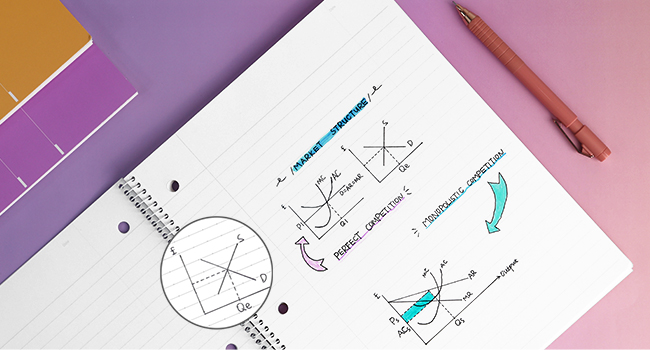 MARKET STRUCTURE
£
S
D
Qe
£
MC
AC
D=AR=MR
P1
Q1
PERFECT COMPETITION
MONOPOLISTIC COMPETITION
£
S
D
Qe
£
MC
AC
AR
MR
OUTPUT
Ps
ACs
Qs